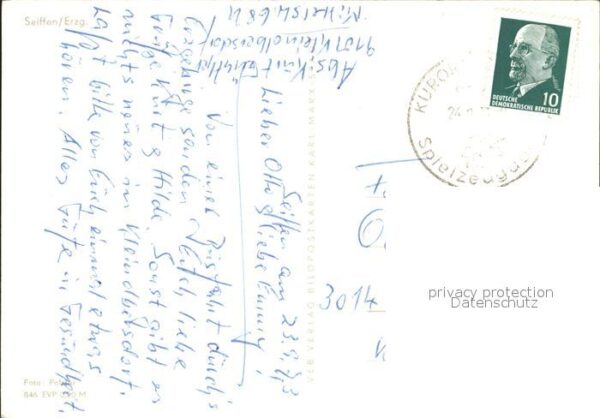 Seiffen/Erzg.
Abs: Kurt
9101 Kleinolbersdorf
68
Seiffen am 23.9.73
Lieber Otto & liebe Emmy!
Von einer Busfahrt durch's
Erzgebirge senden Euch liebe
Grüße Kurt & Hilde. Sonst gibt es
nichts neues in Kleinolbersdorf.
Laßt bitte von Euch einmal etwas
hören. Alles Gute in Gesundheit.
VEB VERLAG BILDPOSTKARTEN KARL-MARX-
Foto:
846 EVP 0,20 M
DEUTSCHE
DEMOKRATISCHE REPUBLIK
10
KURO
24.
Spielzeug
3014
privacy protection
Datenschutz